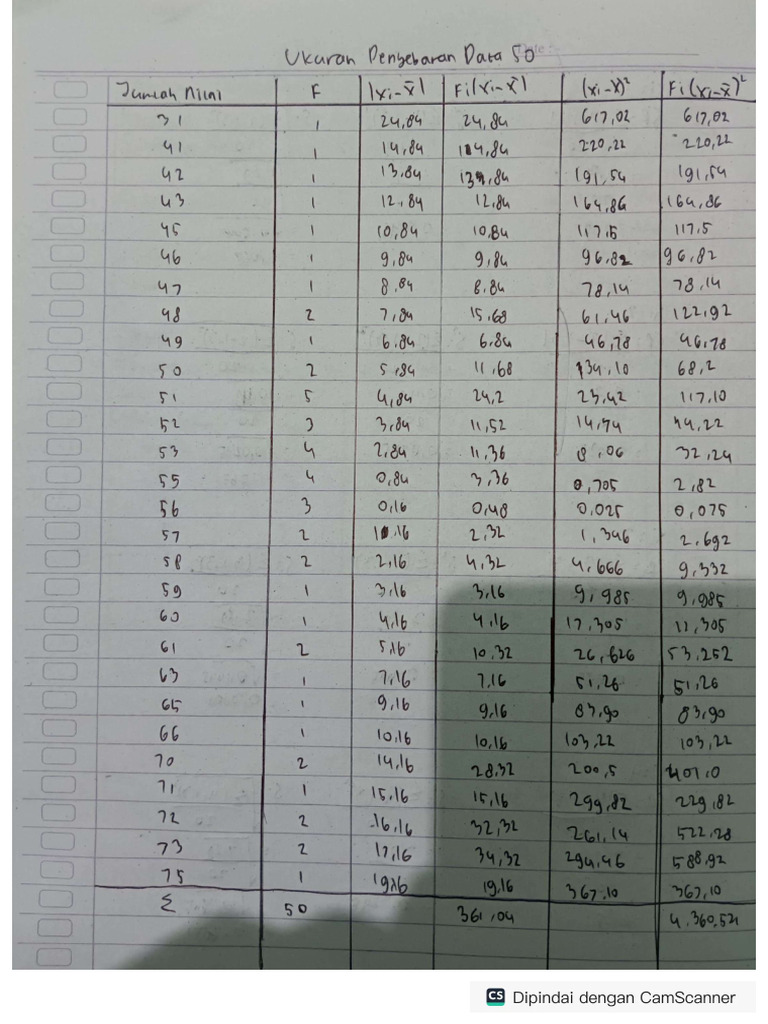 Ukuran Penyebaran Data 50
Jumlah Nilai F |xi-x̄| Fi(xi-x̄) (xi-x̄)² Fi(xi-x̄)²
31 1 24,84 24,84 617,02 617,02
41 1 14,84 14,84 220,22 220,22
42 1 13,84 13,84 191,54 191,54
43 1 12,84 12,84 164,86 164,86
45 1 10,84 10,84 117,5 117,5
46 1 9,84 9,84 96,82 96,82
47 1 8,84 8,84 78,14 78,14
48 2 7,84 15,68 61,46 122,92
49 1 6,84 6,84 46,78 46,78
50 2 5,84 11,68 34,10 68,2
51 5 4,84 24,2 23,42 117,10
52 3 3,84 11,52 14,74 44,22
53 4 2,84 11,36 8,06 32,24
55 4 0,84 3,36 0,705 2,82
56 3 0,16 0,48 0,025 0,075
57 2 1,16 2,32 1,346 2,692
58 2 2,16 4,32 4,666 9,332
59 1 3,16 3,16 9,985 9,985
60 1 4,16 4,16 17,305 17,305
61 2 5,16 10,32 26,626 53,252
63 1 7,16 7,16 51,26 51,26
65 1 9,16 9,16 83,90 83,90
66 1 10,16 10,16 103,22 103,22
70 2 14,16 28,32 200,5 401,0
71 1 15,16 15,16 299,82 229,82
72 2 16,16 32,32 261,14 522,28
73 2 17,16 34,32 294,46 588,92
75 1 19,16 19,16 367,10 367,10
Σ 50 361,04 4.360,521
CS Dipindai dengan CamScanner